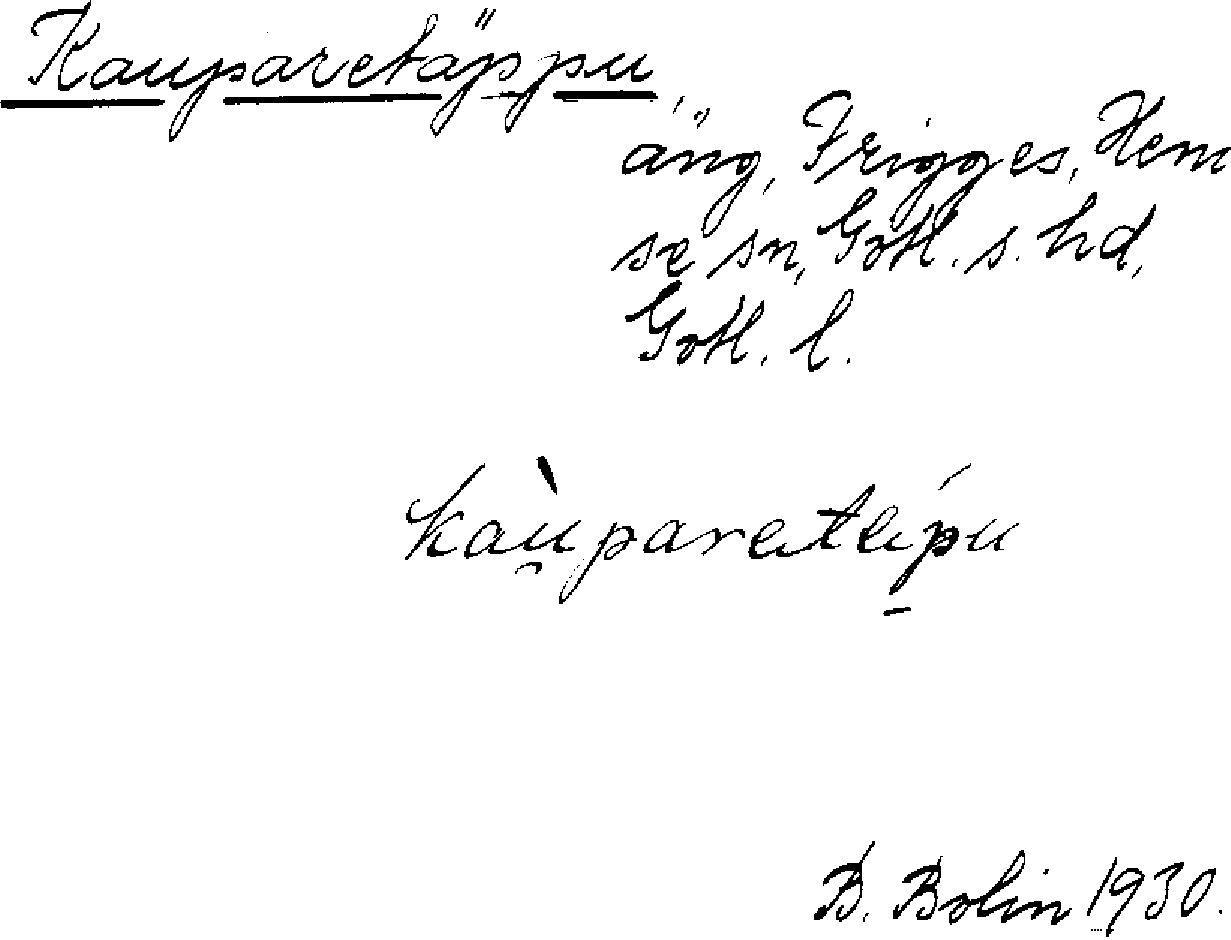 Kauparetäppu,
äng, Frigges, Hem
se sn, Gotl. s. hd,
Gotl. l.
kaù̯pareteṕ̱u
B. Bolin 1930.